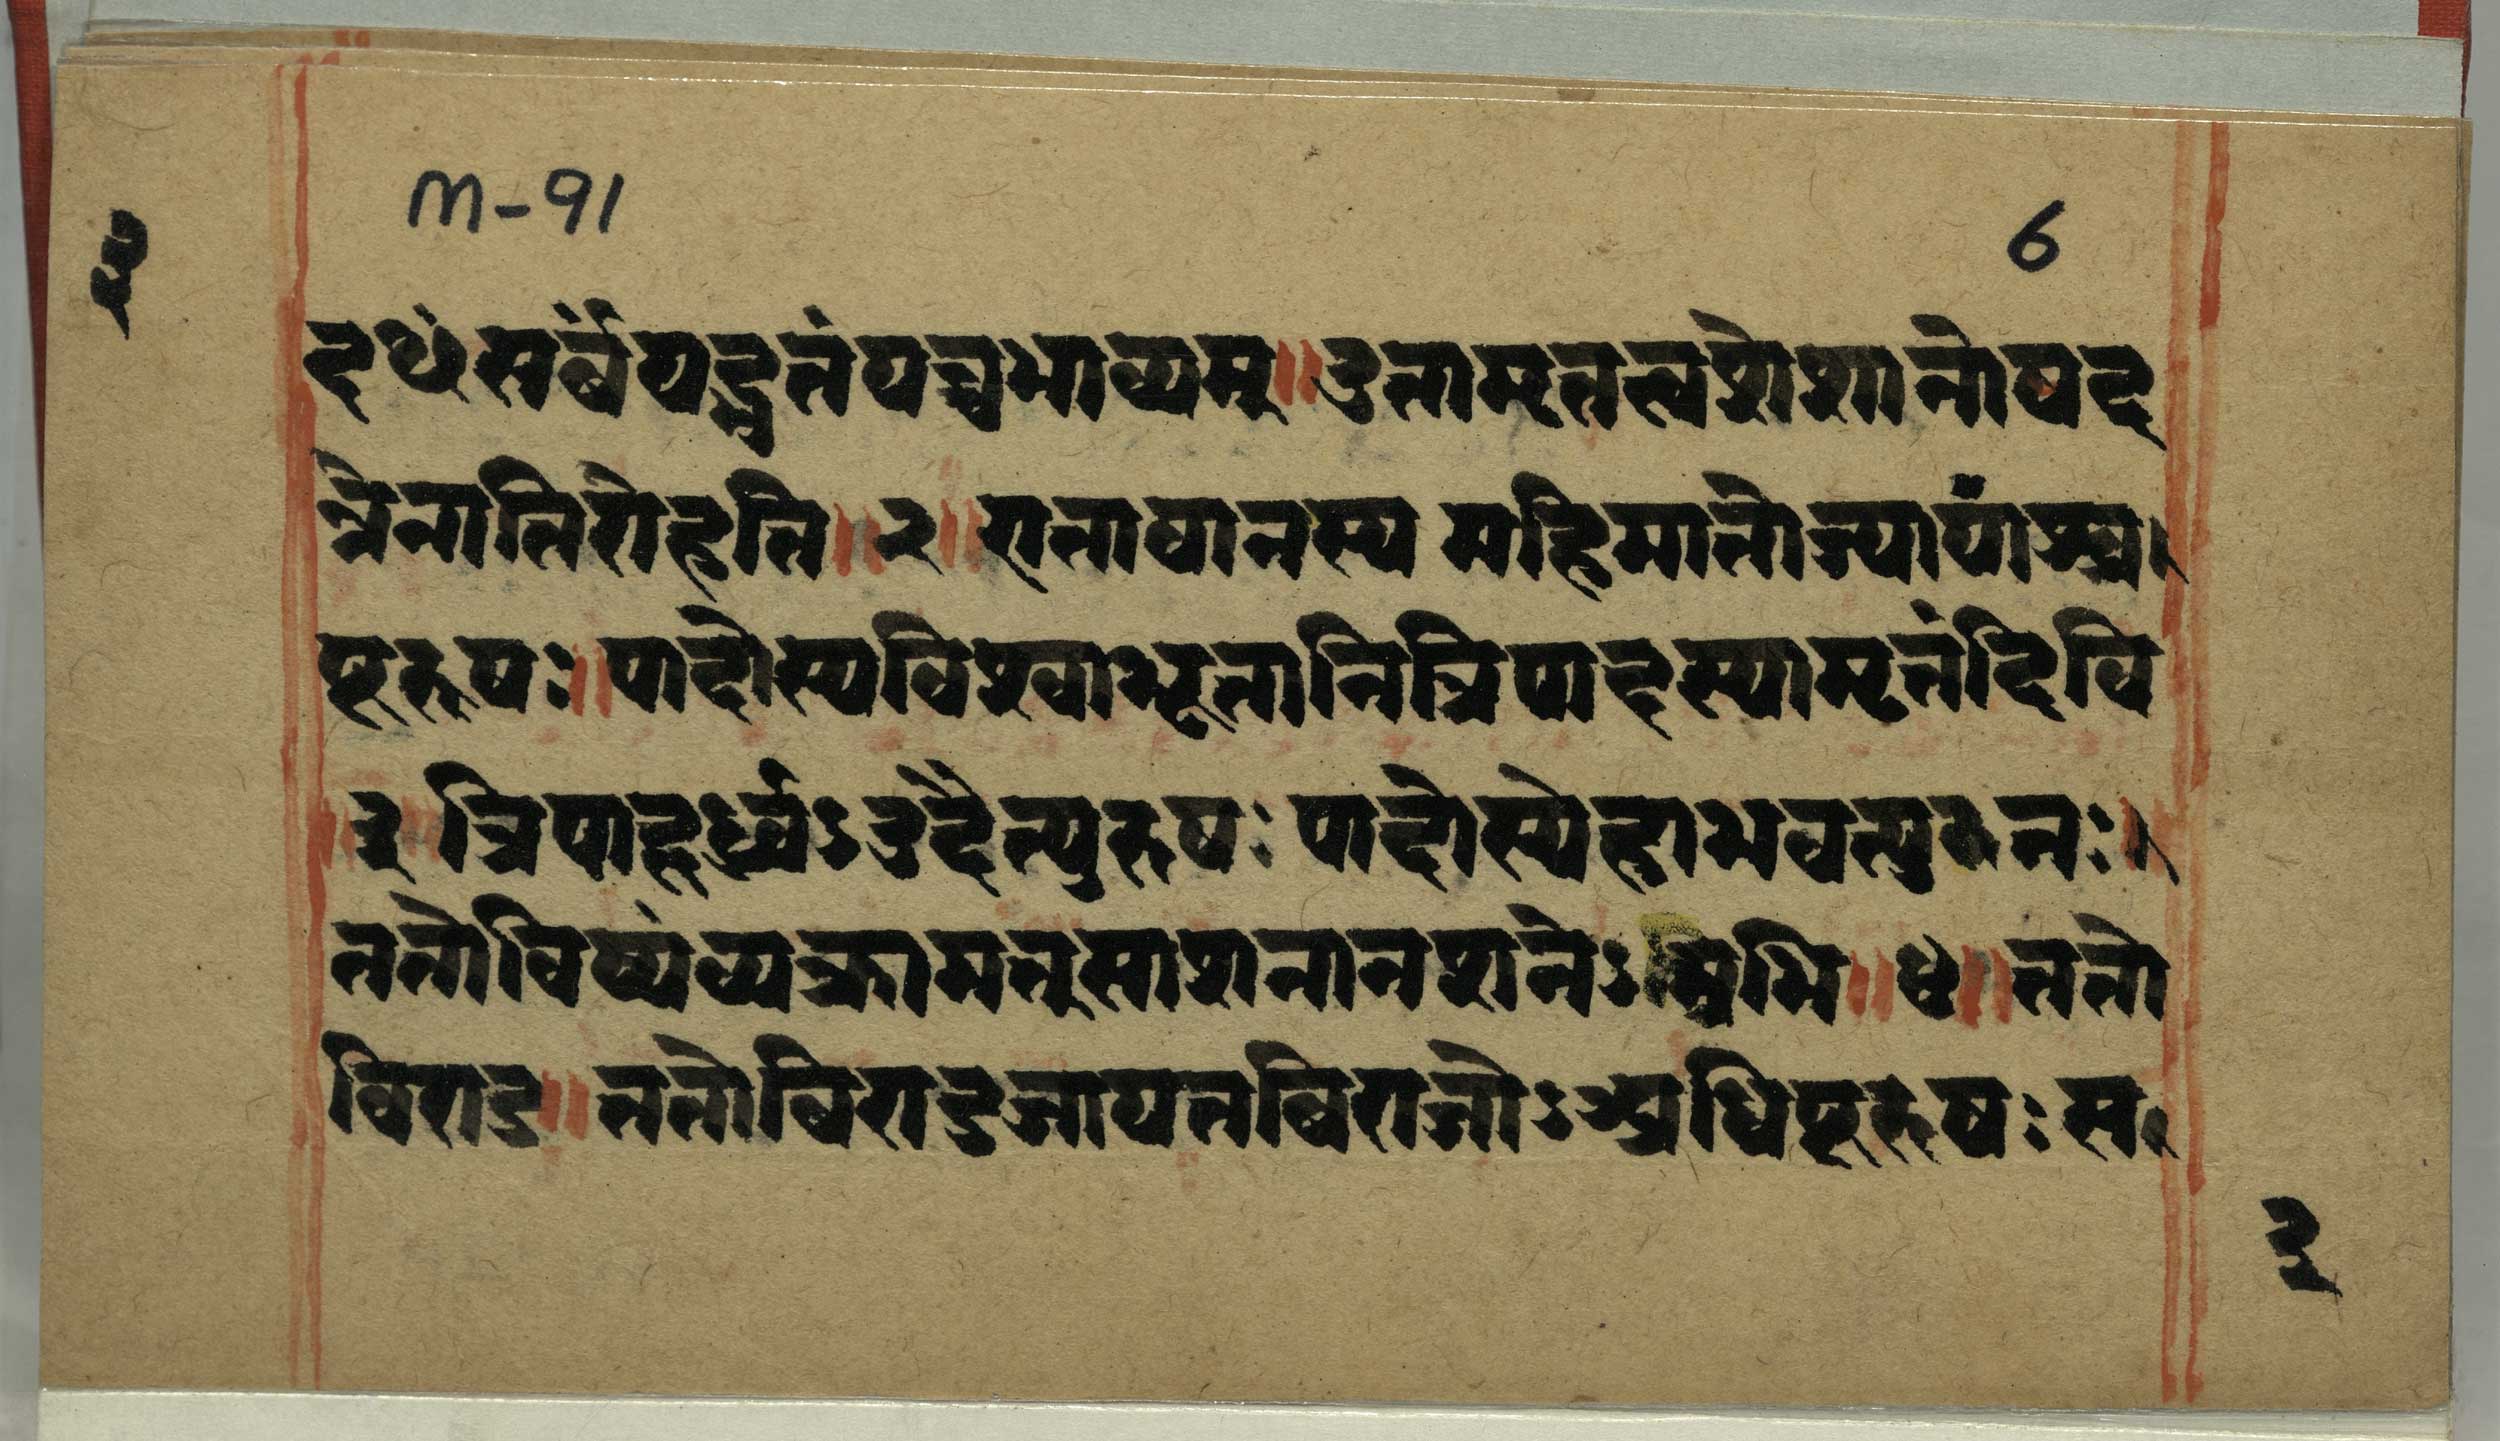 M-91
6
३
दथं सर्वं यद्भूतं यच्चभाव्यम्॥उतामृतत्वश्येशानोयद
न्नेनातिरोहति॥२॥एतावानस्य महिमातोज्यायाँश्च
पूरुषः॥पादोस्यविश्वाभूतानित्रिपादस्यामृतंदिवि
॥३त्रिपादूर्ध्वऽउदैत्पुरुषः पादोस्येहाभवत्पुनः॥
ततोविष्यंव्यक्रामत्साशनानशनेऽअभि॥४॥ततो
विराड॥ततोविराडजायतविराजोऽअधिपूरुषः स
३